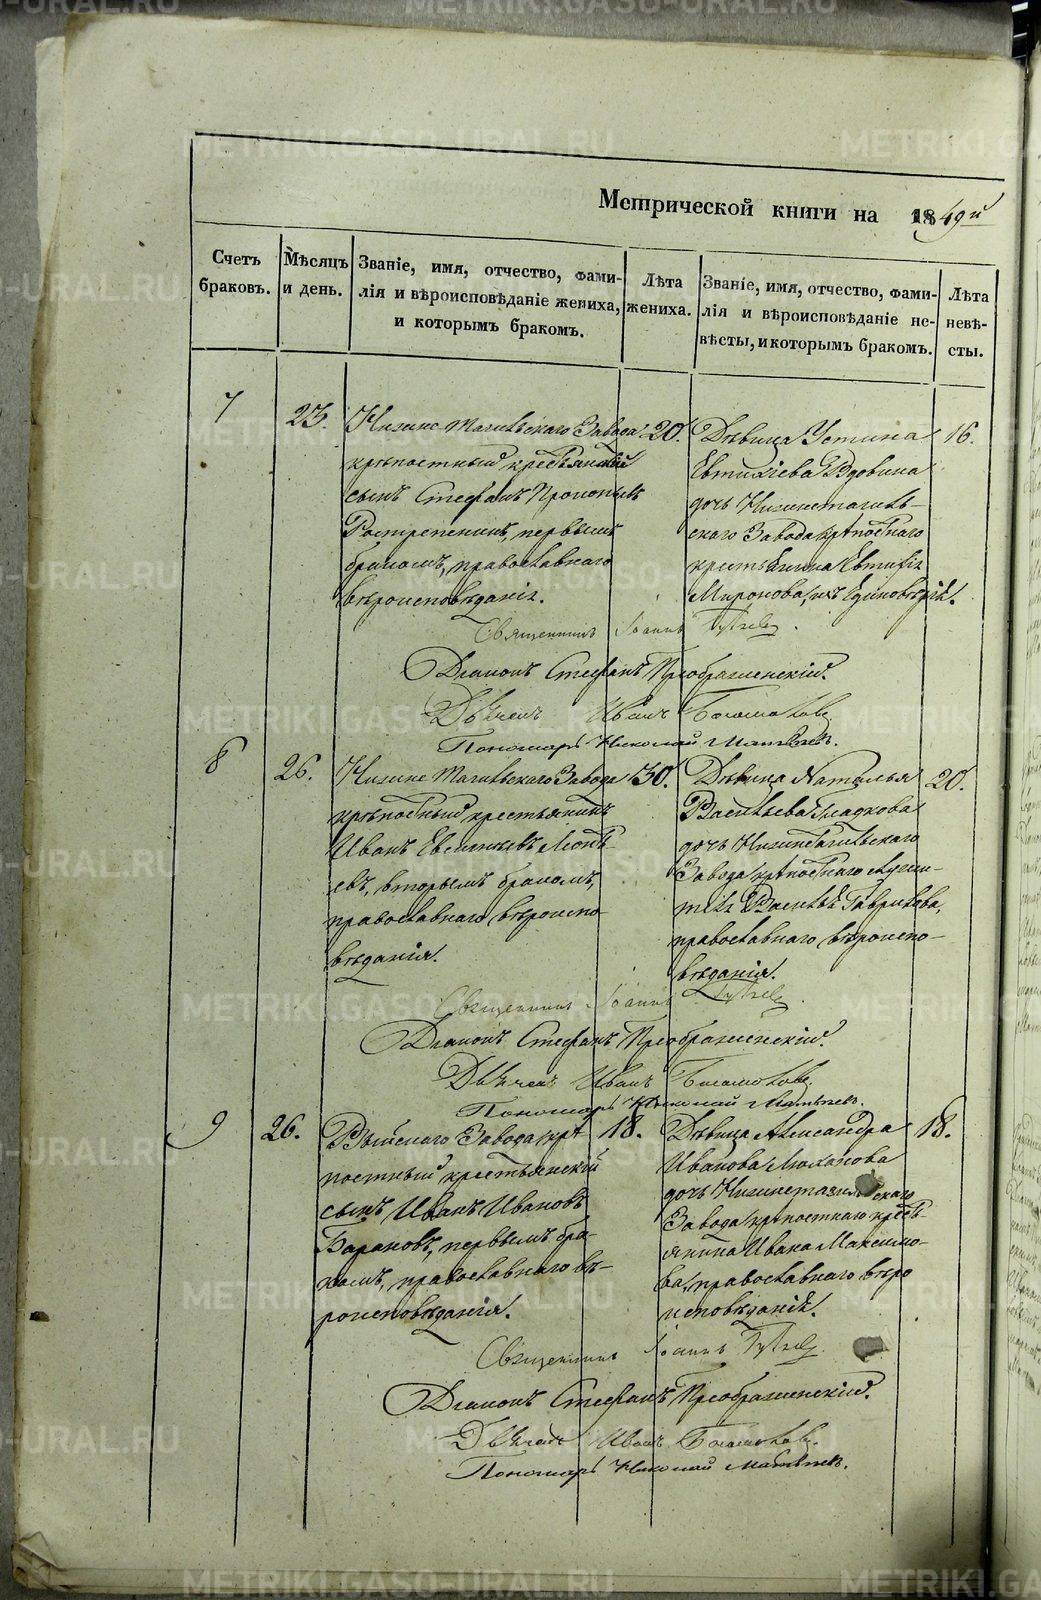 Метрической книги на 1849й
Счетъ браковъ.
Мѣсяцъ и день.
Званіе, имя, отчество, фами-
лія и вѣроисповѣданіе жениха,
и которымъ бракомъ.
Лѣта жениха.
Званіе, имя, отчество, фами-
лія и вѣроисповѣданіе не-
вѣсты, и которымъ бракомъ.
Лѣта невѣ-
сты.
7
23.
Нижне Тагильскаго Завода
крѣпостный крестьянскій
сынъ Стефанъ Прокопьевъ
Растрепенинъ, первымъ
бракомъ, православнаго
вѣроисповѣданія.
20.
Дѣвица Устина
Евтихіева Вдовина
дочь Нижнетагиль-
скаго Завода крѣпостнаго
крестьянина Евтифія
Миронова, изъ Единовѣрія.
16.
Священникъ Іоаннъ
Діаконъ Стефанъ Преображенскій.
Дьячекъ Иванъ
Пономарь Николай Матвѣевъ.
8
26.
Нижне Тагильскаго Завода
крѣпостный крестьянинъ
Иванъ
евъ, вторымъ бракомъ,
православнаго вѣроиспо-
вѣданія.
30.
Дѣвица Наталья
Васильева Гладкова
дочь Нижнетагильскаго
Завода крѣпостнаго служи-
теля Василья Гаврилова,
православнаго вѣроиспо-
вѣданія.
20.
Священникъ Іоаннъ
Діаконъ Стефанъ Преображенскій.
Дьячекъ Иванъ
Пономарь Николай Матвѣевъ.
9
26.
Выйскаго Завода крѣ-
постный крестьянскій
сынъ Иванъ Ивановъ
Барановъ, первымъ бра-
комъ, православнаго вѣ-
роисповѣданія.
18.
Дѣвица Александра
Иванова
дочь Нижнетагильскаго
Завода крѣпостнаго кресть-
янина Ивана Максимо-
ва, православнаго вѣро
исповѣданія.
18.
Священникъ Іоаннъ
Діаконъ Стефанъ Преображенскій.
Дьячекъ Иванъ
Пономарь Николай Матвѣевъ.
METRIKI.GASO-URAL.RU